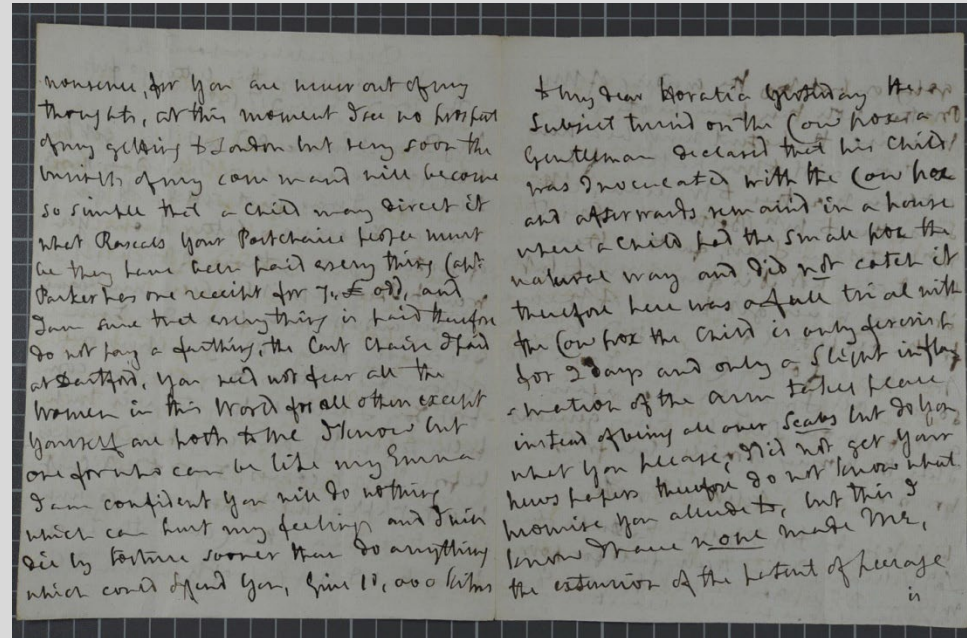 nonsense, for you are never out of my
thoughts, at this moment I see no prospect
of my getting to London but very soon the
business of my command will become
so simple that a child may direct it
what Rascals your Postchaise people must
be they have been paid every thing Capt.
Parker has one receipt for 7,,£ odd, and
I am sure that every thing is paid therefore
do not pay a farthing, the Cart Chaise I paid
at Dartford, You need not fear all the
Women in this World for all others except
yourself are pests to me I know but
one for who can be like my Emma
I am confident you will do nothing
which can hurt my feelings and I will
die by torture sooner than do anything
which could offend You, Give 10,000 kisses
to my dear Horatia Yesterday the
Subject turn'd on the Cow pox a
Gentleman declared that his Child
was Inoculated with the Cow pox
and afterwards remain'd in a house
where a Child had the Small pox the
natural way and did not catch it
therefore here was a full trial with
the Cow pox the Child is only feverish
for 2 days and only a Slight infla
=mation of the arm takes place
instead of being all over Scabs but do You
what You please, I did not get your
news papers therefore do not know what
promise you allude to, but this I
know I have none made Me,
the extension of the patent of peerage
is